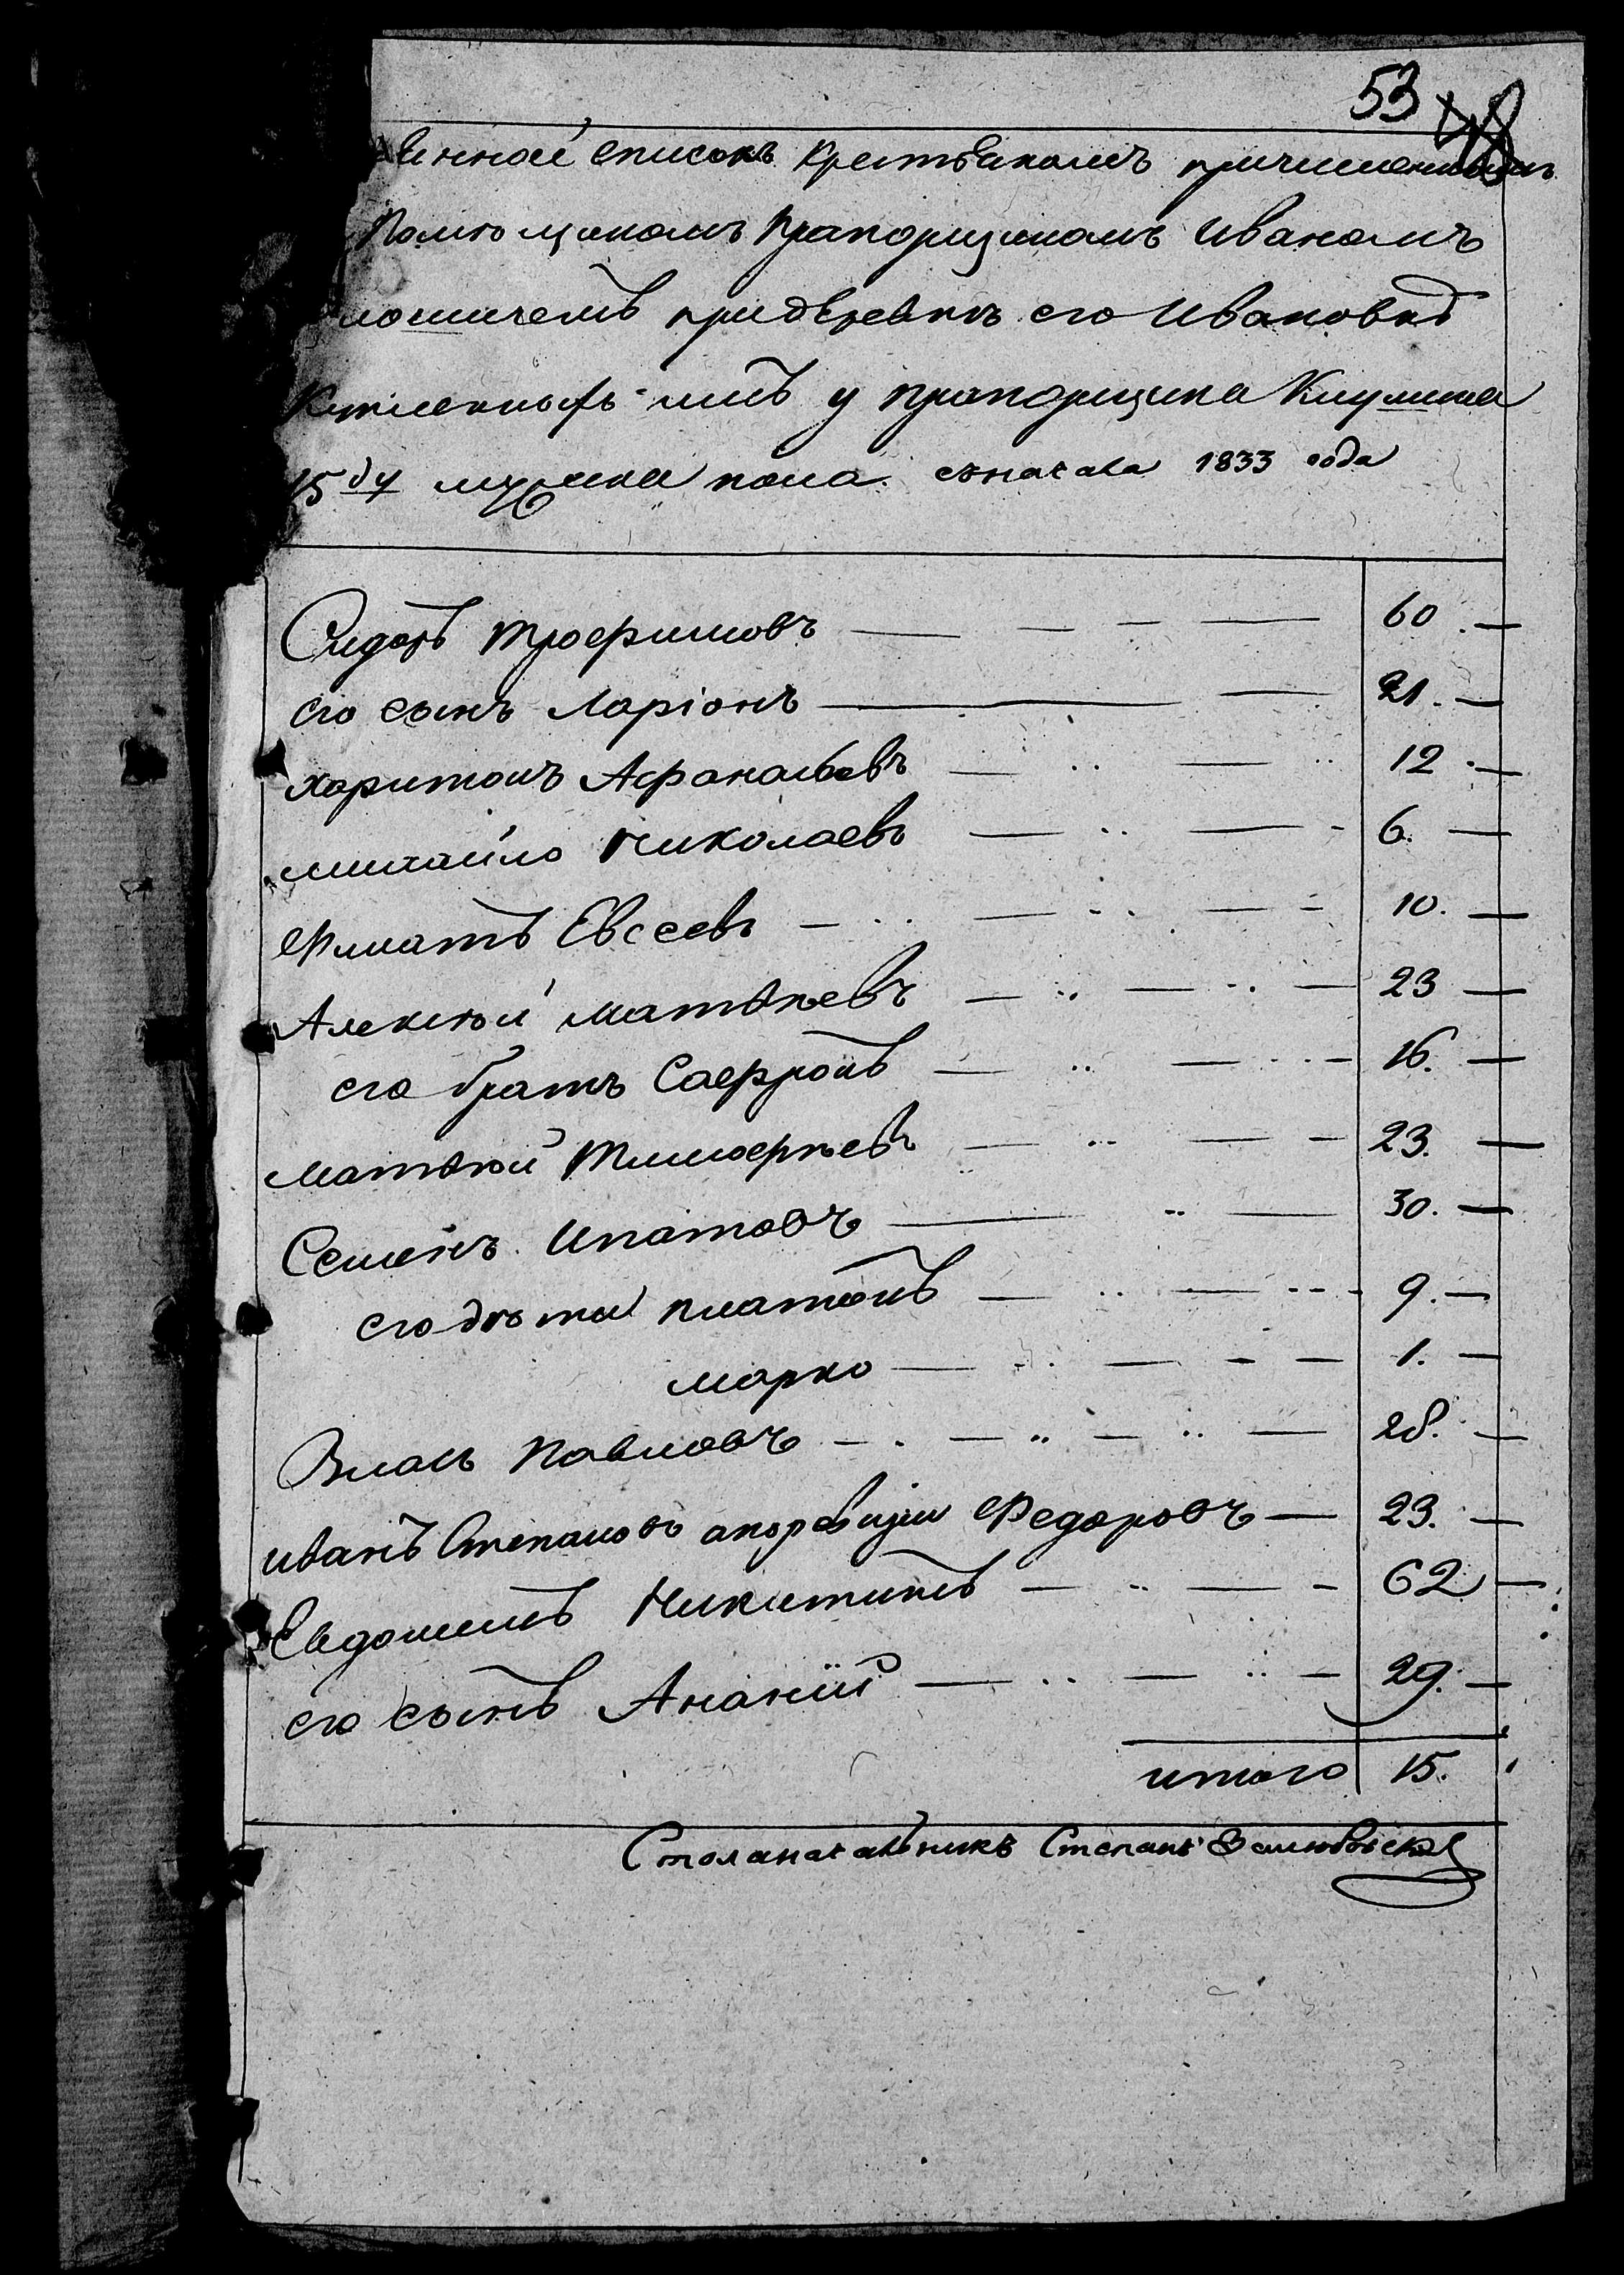 53
енной списокъ крестьяномъ причисленнымъ
Помѣщикомъ Прапорщикомъ Иваномъ
придѣревнѣ его Ивановкѣ
Купленныхъ имъ у прапорщика
15 ду мужска пола съначала 1833 года
Сидоръ Трофимовъ 60
его сынъ Ларіонъ 21.
харитонъ Афанасьевъ 12
михайло Николаевъ 6.
Филатъ Евсеевъ 10.
Алексѣй матвѣевъ 23
его братъ Сафронъ 16.
матвѣй Тимофѣевъ 23.
Семенъ Ипатовъ 30.
его дѣти платонъ 9.
марко 1.
Власъ Павловъ 28.
иванъ Степановъ апоревизіи Федоровъ 23.
Евдокимъ Никитинъ 62
его сынъ Ананій 29.
итого 15.
Столаначальникъ Степанъ